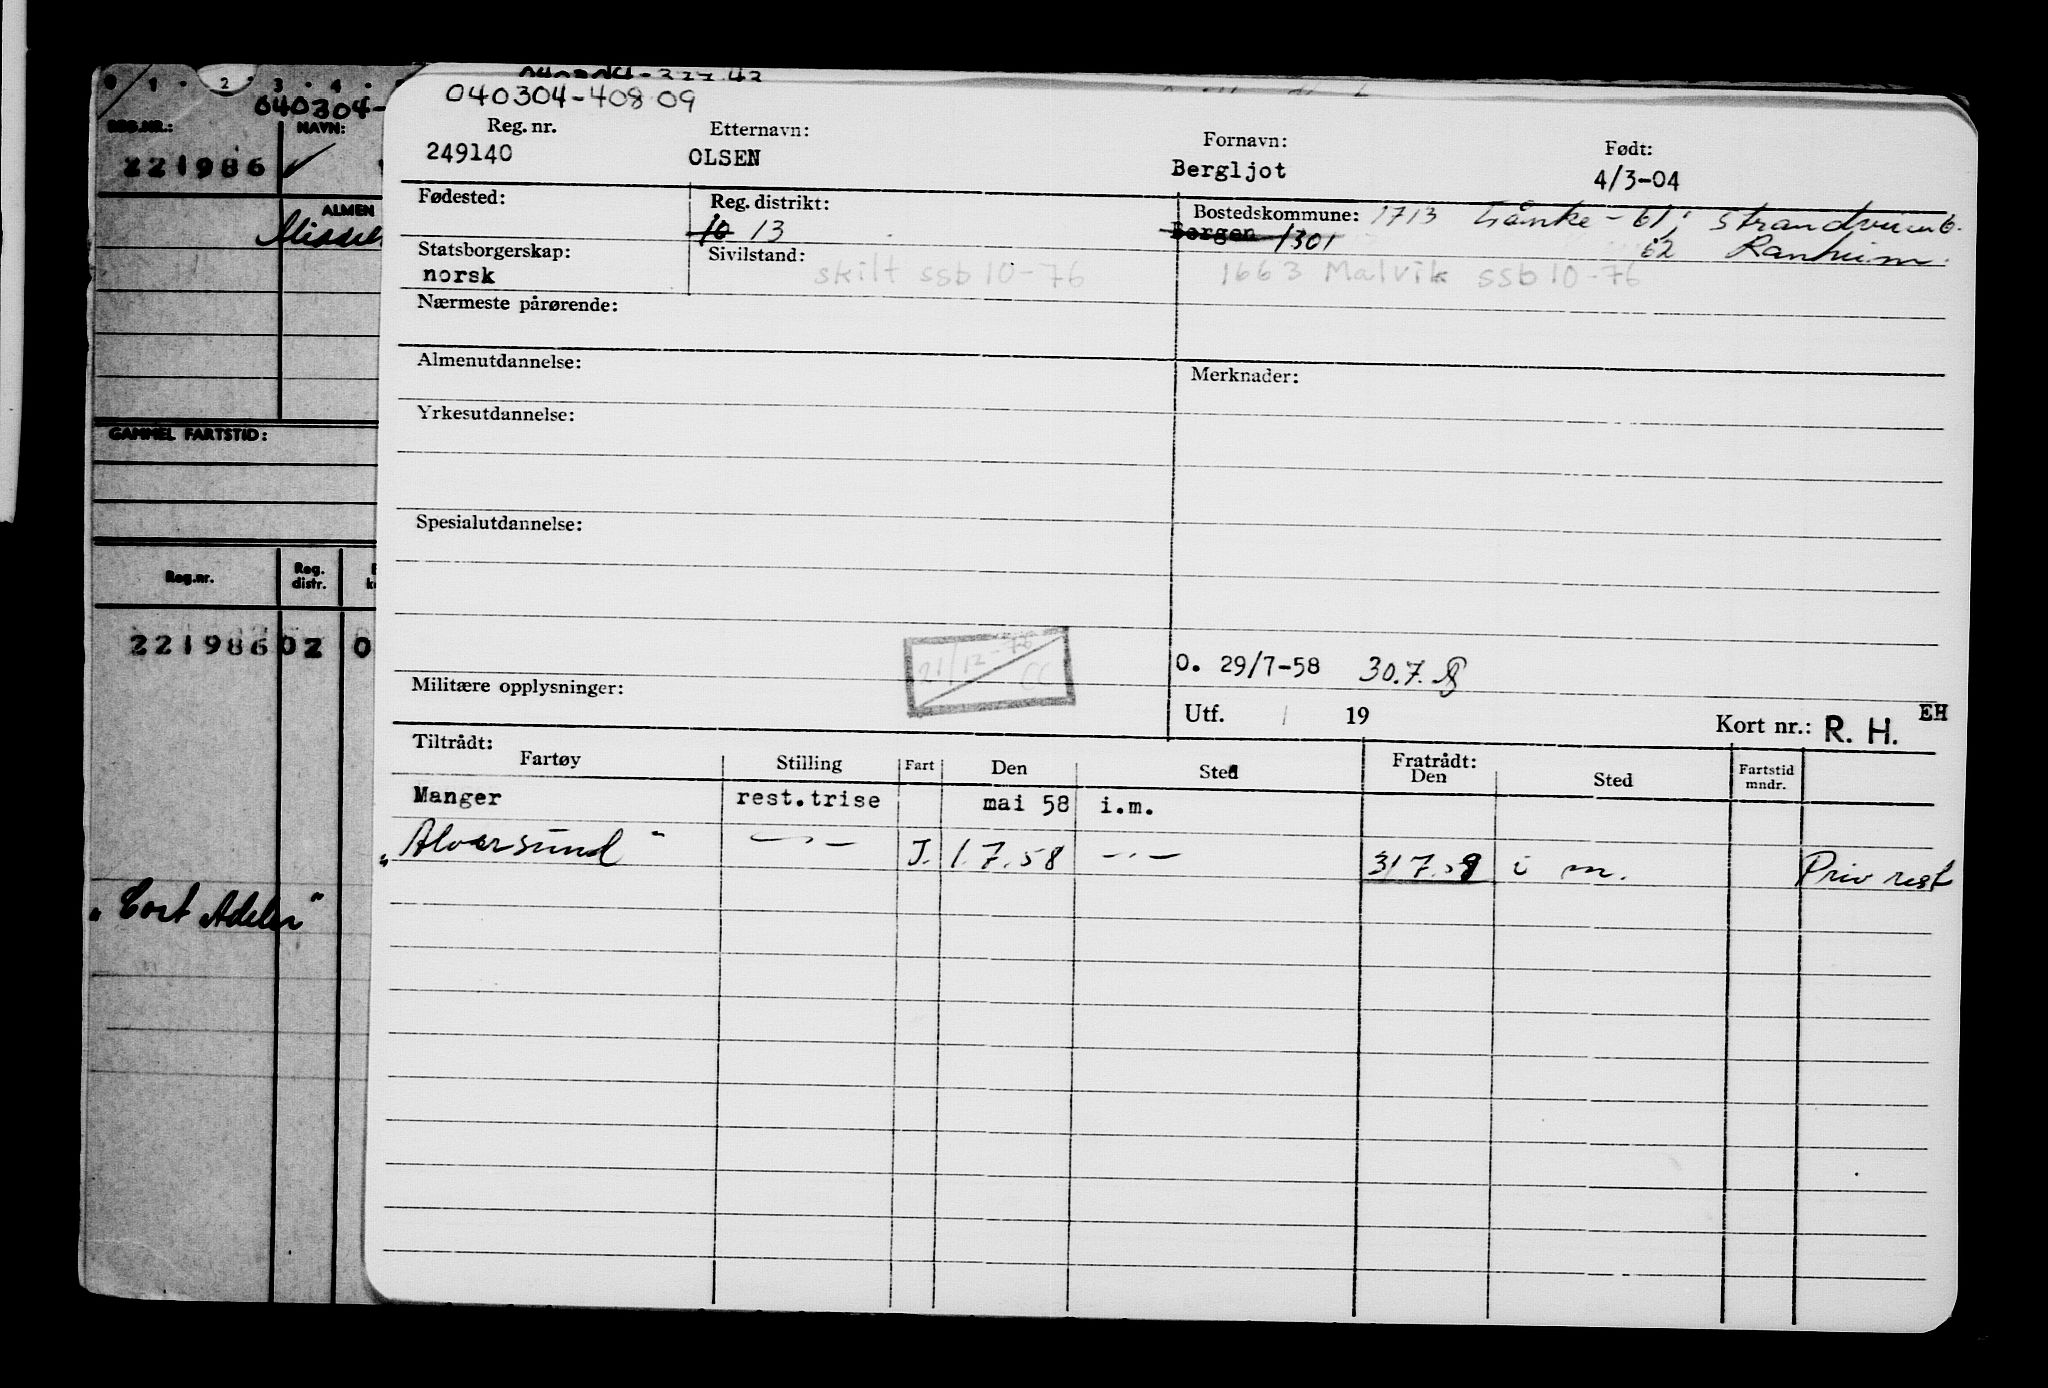 1 . 2 . 3 . 4 .
040304-
REG.NR.: NAVN:
221986 ✓
ALMEN
GAMMEL FARTSTID:
Reg.nr. Reg. distr.
221986 02 0
"Cort Adeler"
040304-40809
Reg. nr. Etternavn: Fornavn: Født:
249140 OLSEN Bergljot 4/3-04
Fødested: Reg. distrikt: Bostedskommune: 1713 Lånke - 61,
10 13 Bergen 1301 62 Ranheim.
Statsborgerskap: Sivilstand:
norsk skilt ssb 10-76 1663 Malvik ssb 10-76
Nærmeste pårørende:
Almenutdannelse: Merknader:
Yrkesutdannelse:
Spesialutdannelse:
21/12-76 CC
O. 29/7-58 30.7.
Militære opplysninger: Utf. / 19 Kort nr.: R. H. EH
Tiltrådt: Fratrådt:
Fartøy Stilling Fart Den Sted Den Sted Fartstid mndr.
Manger rest.trise mai 58 i.m.
"Alversund" —"— J. 1.7.58 —"— 31.7.58 i m. Priv rest